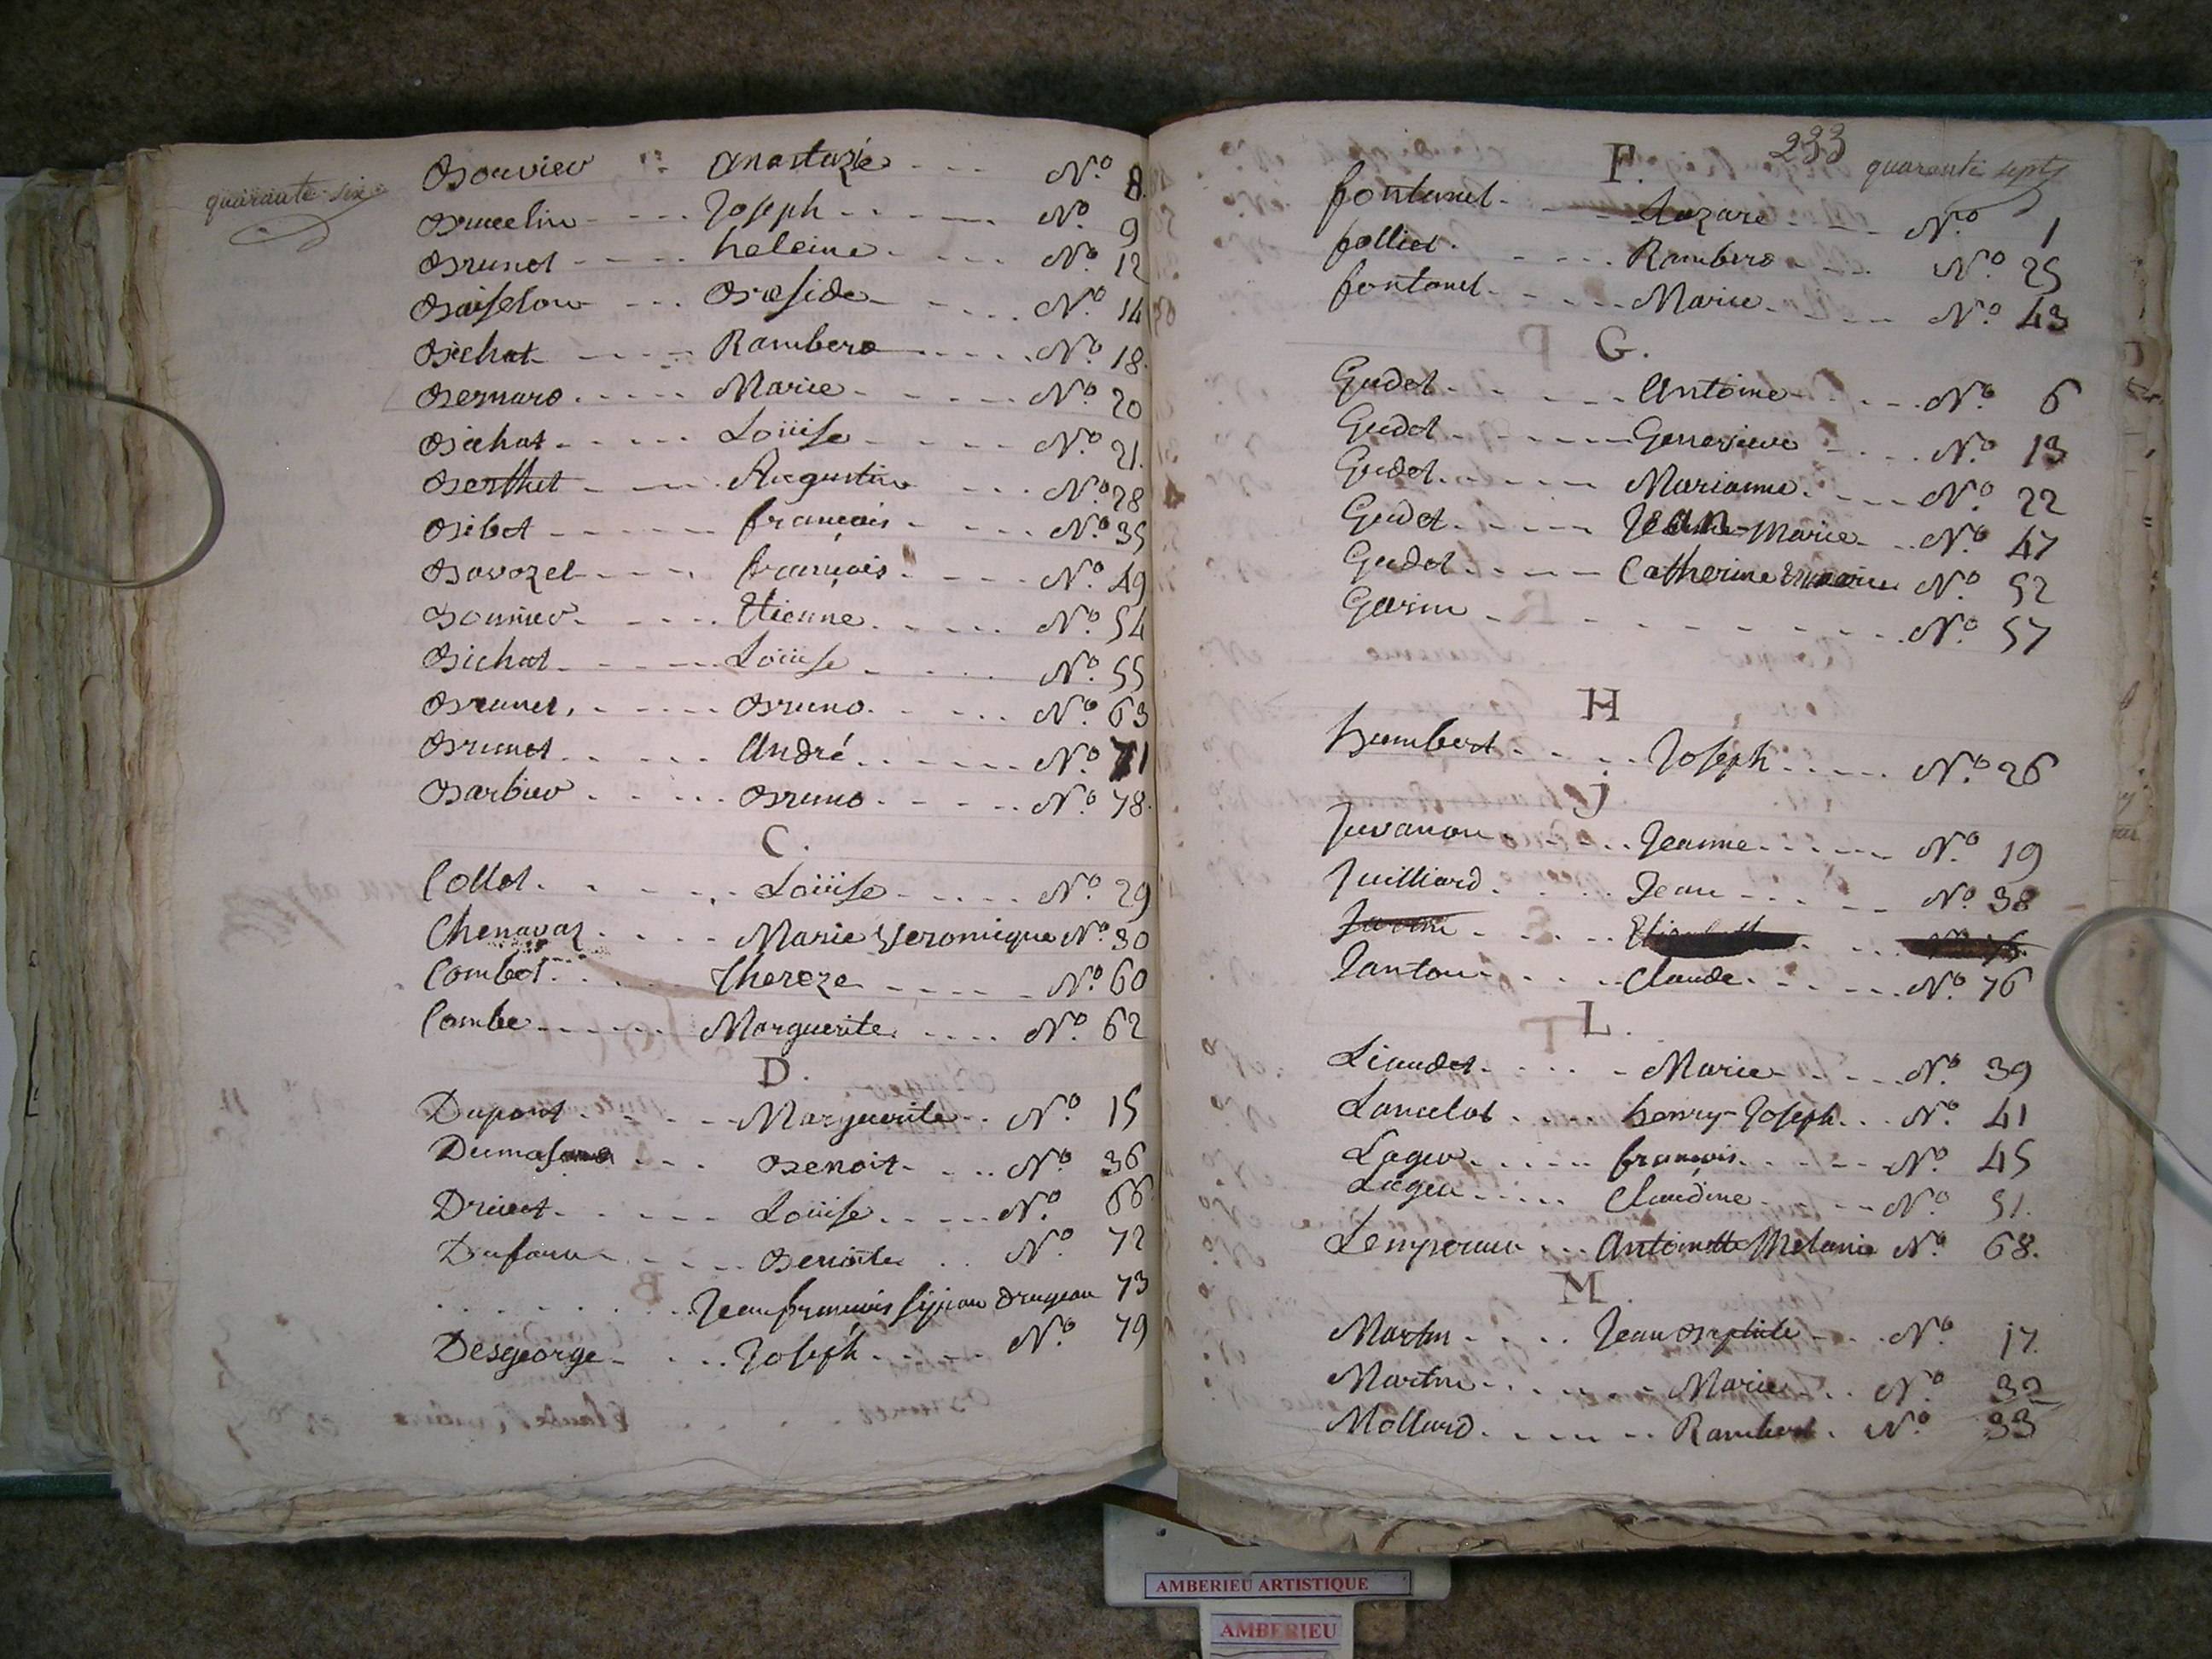 quarante-six
Bouvier Anastazie N.º 8.
Brucelin Joseph N.º 9
Brunet heleine N.º 12
Boisselon Braside N.º 14
Bichat Rambert N.º 18.
Bernard Marie N.º 20
Bichat Loüise N.º 21.
Berthet Augustin N.º 28
Bibet françois N.º 35
Bavozet françois N.º 49
Bonnier Etienne N.º 54
Bichat Loüise N.º 55
Brunet Bruno N.º 63
Brunet André N.º 71
Barbier Bruno N.º 78.
C.
Collet Loüise N.º 29
Chenavaz Marie Veronique N.º 30
Combet Thereze N.º 60
Combe Marguerite N.º 62
D.
Dupont Marguerite N.º 15
Benoit N.º 36
Druet Loüise N.º 66
Dufour Benoite N.º 72
Jean françois drugeon 73
Desgeorge Joseph N.º 79
233
quarante sept
F.
fontanel Lazare N.º 1
folliet Rambert N.º 25
fontanel Marie N.º 43
G.
Gudet Antoine N.º 6
Gudet Genevieve N.º 13
Gudet Marianne N.º 22
Gudet Jean-Marie N.º 47
Gudet Catherine Marie N.º 52
Garin N.º 57
H
humbert Joseph N.º 26
J
Juvanon Jeanne N.º 19
Juilliard Jean N.º 38
Janton Claude N.º 76
L.
Liaudet Marie N.º 39
Lancelot henry-Joseph N.º 41
Lager françois N.º 45
Lager Claudine N.º 51.
Lempereur Antoinette Melanie N.º 68.
M.
Martin Jean Baptiste N.º 17.
Martin Marie N.º 32
Mollard Rambert N.º 33
AMBERIEU ARTISTIQUE
AMBERIEU